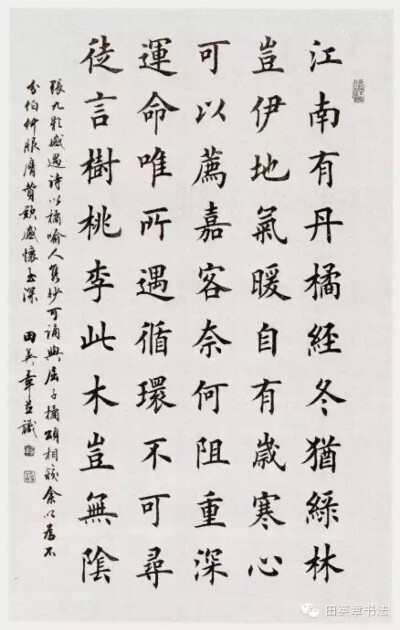 江南有丹橘經冬猶緑林
豈伊地氣暖自有歲寒心
可以薦嘉客奈何阻重深
運命唯所遇循環不可尋
徒言樹桃李此木豈無陰
張九齡感遇诗以橘喻人隽妙可誦與屈子橘頌相較余以為不
分伯仲服膺贊歎感懷至深 田英章並識
田英章书法